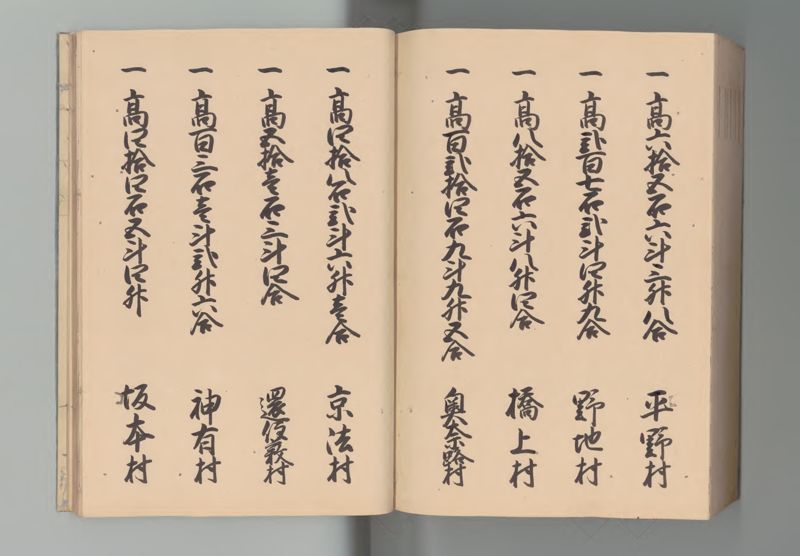 一 高六拾五石六斗三升八合 平野村
一 高弐百七石弐斗四升九合 野地村
一 高八拾五石六斗八升四合 橋上村
一 高百弐拾四石九斗九升五合 奥奈路村
一 高四拾八石弐斗六升壱合 京法村
一 高五拾壱石三斗四合 還住藪村
一 高百三石壱斗弐升六合 神有村
一 高四拾四石五斗四升 坂本村